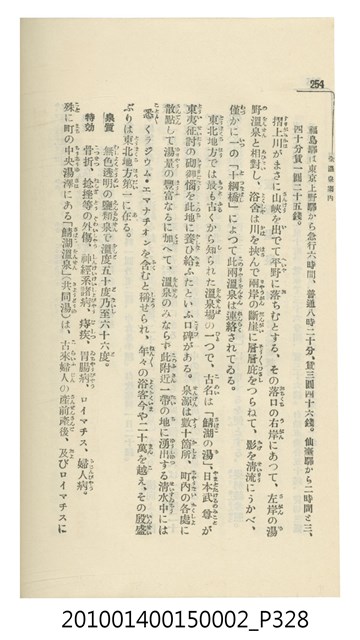 254
福島驛は東京上野驛から急行六時間、普通八時二十分。賃三圓四十六錢。仙臺驛から二時間と三、
四十分賃一圓二十五錢。
摺上川がまさに山峽を出でて平野に落ちむとする、その落口の右岸にあつて、左岸の湯
野溫泉と相對し、浴舍は川を挾んで兩岸の斷崖に層層庇をつらねて、影を淸流にうかべ、
僅かに一の「十綱橋」によつて此兩溫泉は連絡されてゐる。
東北地方では最も古くから知られた溫泉場の一つで、古名は「鯖湖の湯」、日本武尊が
東夷征討の砌御惱を此地に養ひ給ふたといふ口碑がある。泉源は數十箇所、町內の各處に
散點して湯量の豐富なるに加へて、溫泉のみならず此附近一帶の地に湧出する淸水中には
悉くラヂウム・エマナチオンを含むと稱せられ、年々の浴客今や二十萬を越え、その殷盛
ぶりは東北地方第一に在る。
泉質 無色透明の鹽類泉で溫度五十度乃至六十六度。
特効 骨折、捻挫等の外傷、神經系諸病、痔疾、胃腸病、ロイマチス、婦人病。
殊に町の中央湯澤にある「鯖湖溫泉」(共同湯)は、古來婦人の産前產後、及びロイマチスに
201001400150002_P328